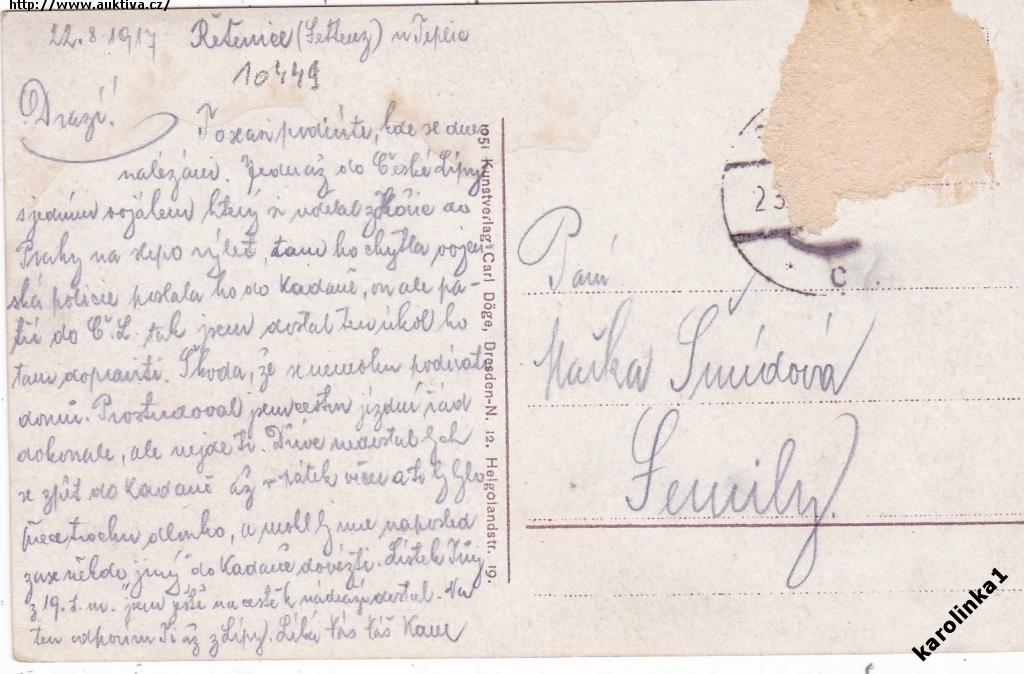 http://www.auktiva.cz/
22.8.1917 Řetenice (Settenz) u Teplic
10449
Drazí!
podivíte, kde se dnes
nalézám. Jedu až do České Lípy
s jedním vojákem který si udělal z do
Prahy na slepo výlet, tam ho chytla vojen
ská policie poslala ho do Kadaně, on ale pa-
tří do Č.L. tak jsem dostal ten úkol ho
tam dopraviti. Škoda, že se nemohu podívati
domů. Prostudoval jsem jízdní řád
dokonale, ale nejde to. Dříve nedostal bych
se zpět do Kadaně až v pátek večer a to by bylo
přece trochu dlouho, a mohl by mne naposled
zase někdo jiný do Kadaně dovézti. Lístek Tvůj
z 19. t.m. jsem ještě na cestě k nádraží dostal. Na
ten odpovím Ti až z Lípy. Líbá Vás Váš
1051 Kunstverlag Carl Döge, Dresden-N. 12. Helgolandstr. 19.
23
c
Paní
Mařka Šmídová
Semily.
karolinka1